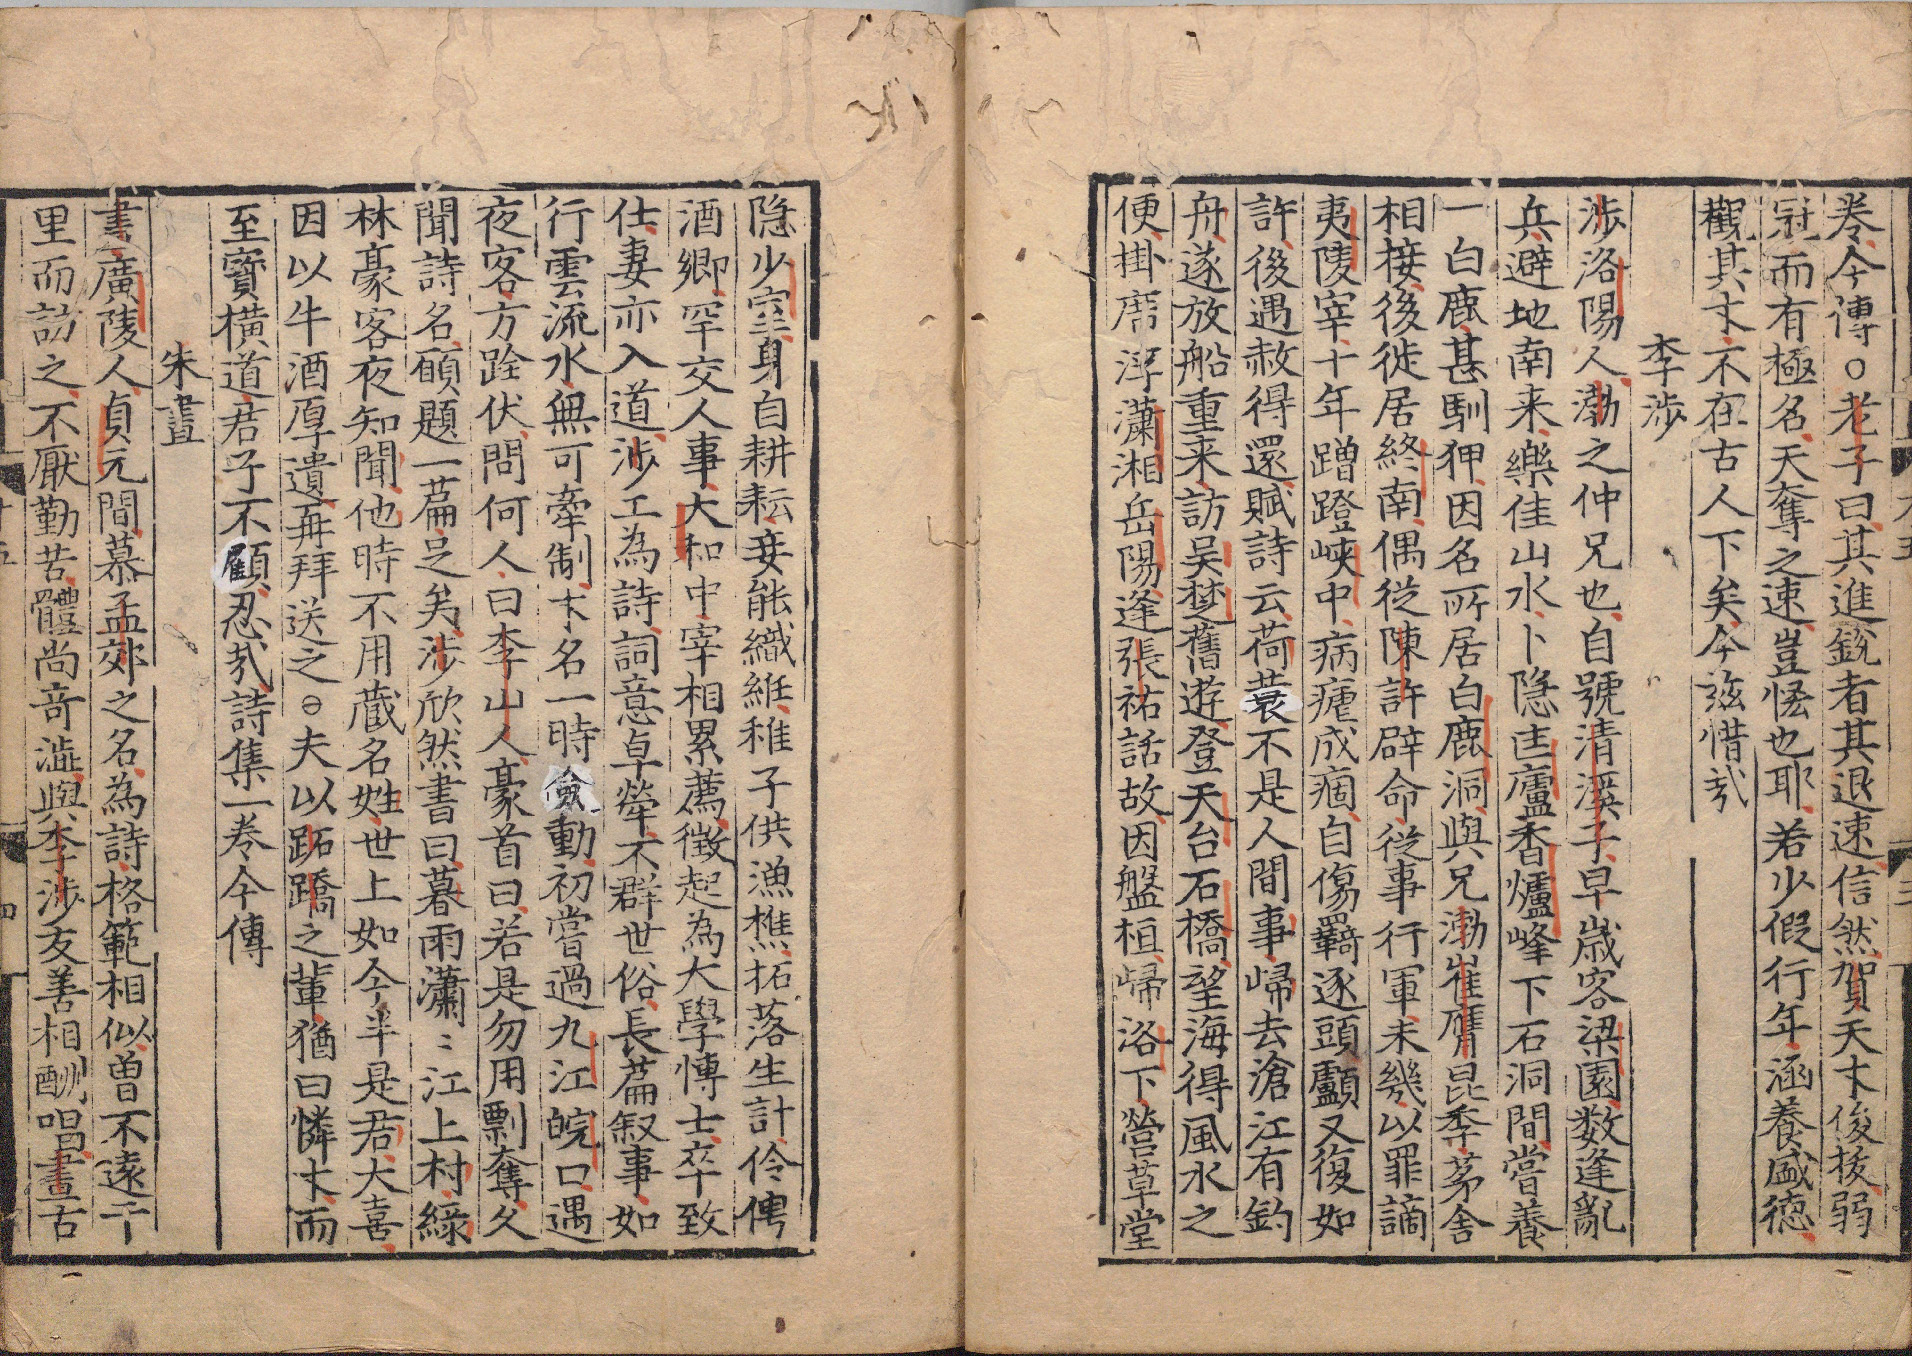 卷今傳○老子曰其進銳者其退速信然賀天才俊拔弱
冠而有極名天奪之速豈恡也耶若少假行年涵養盛德
觀其才不在古人下矣今兹惜哉
李涉
涉洛陽人渤之仲兄也自號清溪子早歳客梁園数逢亂
兵避地南来樂佳山水卜隠匡廬香爐峰下石洞間嘗養
一白鹿甚馴狎因名所居白鹿洞與兄渤崔膺昆季茅舍
相接後徙居終南偶從陳許辟命從事行軍未幾以罪謫
夷陵宰十年蹭蹬峽中病瘧成痼自傷羇逐頭顱又復如
許後遇赦得還賦詩云荷蓑不是人間事歸去滄江有釣
舟遂放船重来訪吴楚舊遊登天台石橋望海得風水之
便掛席浮瀟湘岳陽逢張祜話故因盤桓歸洛下營草堂
隠少室身自耕耘妾能織維稚子供漁樵拓落生計伶俜
酒鄉罕交人事大和中宰相累薦徵起為大學博士卒致
仕妻亦入道涉工為詩詞意卓犖不群世俗長篇叙事如
行雲流水無可牽制才名一時儉動初嘗過九江皖口遇
夜客方跧伏問何人曰李山人豪首曰若是勿用剽奪久
聞詩名願題一篇足矣涉欣然書曰暮雨瀟〻江上村緑
林豪客夜知聞他時不用蔵名姓世上如今半是君大喜
因以牛酒厚遺再拜送之○夫以跖蹻之輩猶曰憐才而
至寳橫道君子不顧忍㢤詩集一卷今傳
朱晝
晝廣陵人貞元間慕孟郊之名為詩格範相似曽不遠千
里而訪之不厭勤苦體尚竒澁與李涉友善相酬唱晝古